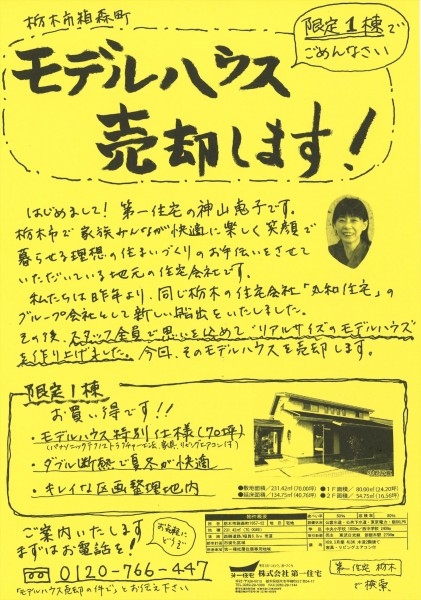 栃木市箱森町
限定1棟で
ごめんなさい
モデルハウス
売却します!
はじめまして! 第一住宅の神山恵子です。
栃木市で家族みんなが快適に楽しく笑顔で
暮らせる理想の住まいづくりのお手伝いをさせて
いただいている地元の住宅会社です。
私たちは昨年より、同じ栃木の住宅会社「丸和住宅」の
グループ会社として新しい船出をいたしました。
その後、スタッフ全員で思いを込めて"リアルサイズのモデルハウス"
を作り上げました。今回、そのモデルハウスを売却します。
限定1棟
お買い得です!!
・モデルハウス特別仕様(70坪)
・ダブル断熱で夏冬が快適
・キレイな区画整理地内
●敷地面積/231.42㎡(70.00坪)
●1F面積/80.00㎡(24.20坪)
●延床面積/134.75㎡(40.76坪)
●2F面積/54.75㎡(16.56坪)
物件概要
ご案内いたします
まずはお電話を!
お気軽に
どうぞ
0120-766-447
「モデルハウス売却の件で」とお伝え下さい
第一住宅
株式会社 第一住宅
第一住宅 栃木
で検索